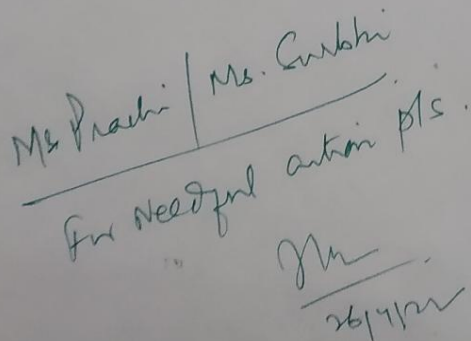 Ms Prachi / Ms. Surbhi
For Needful action pls.